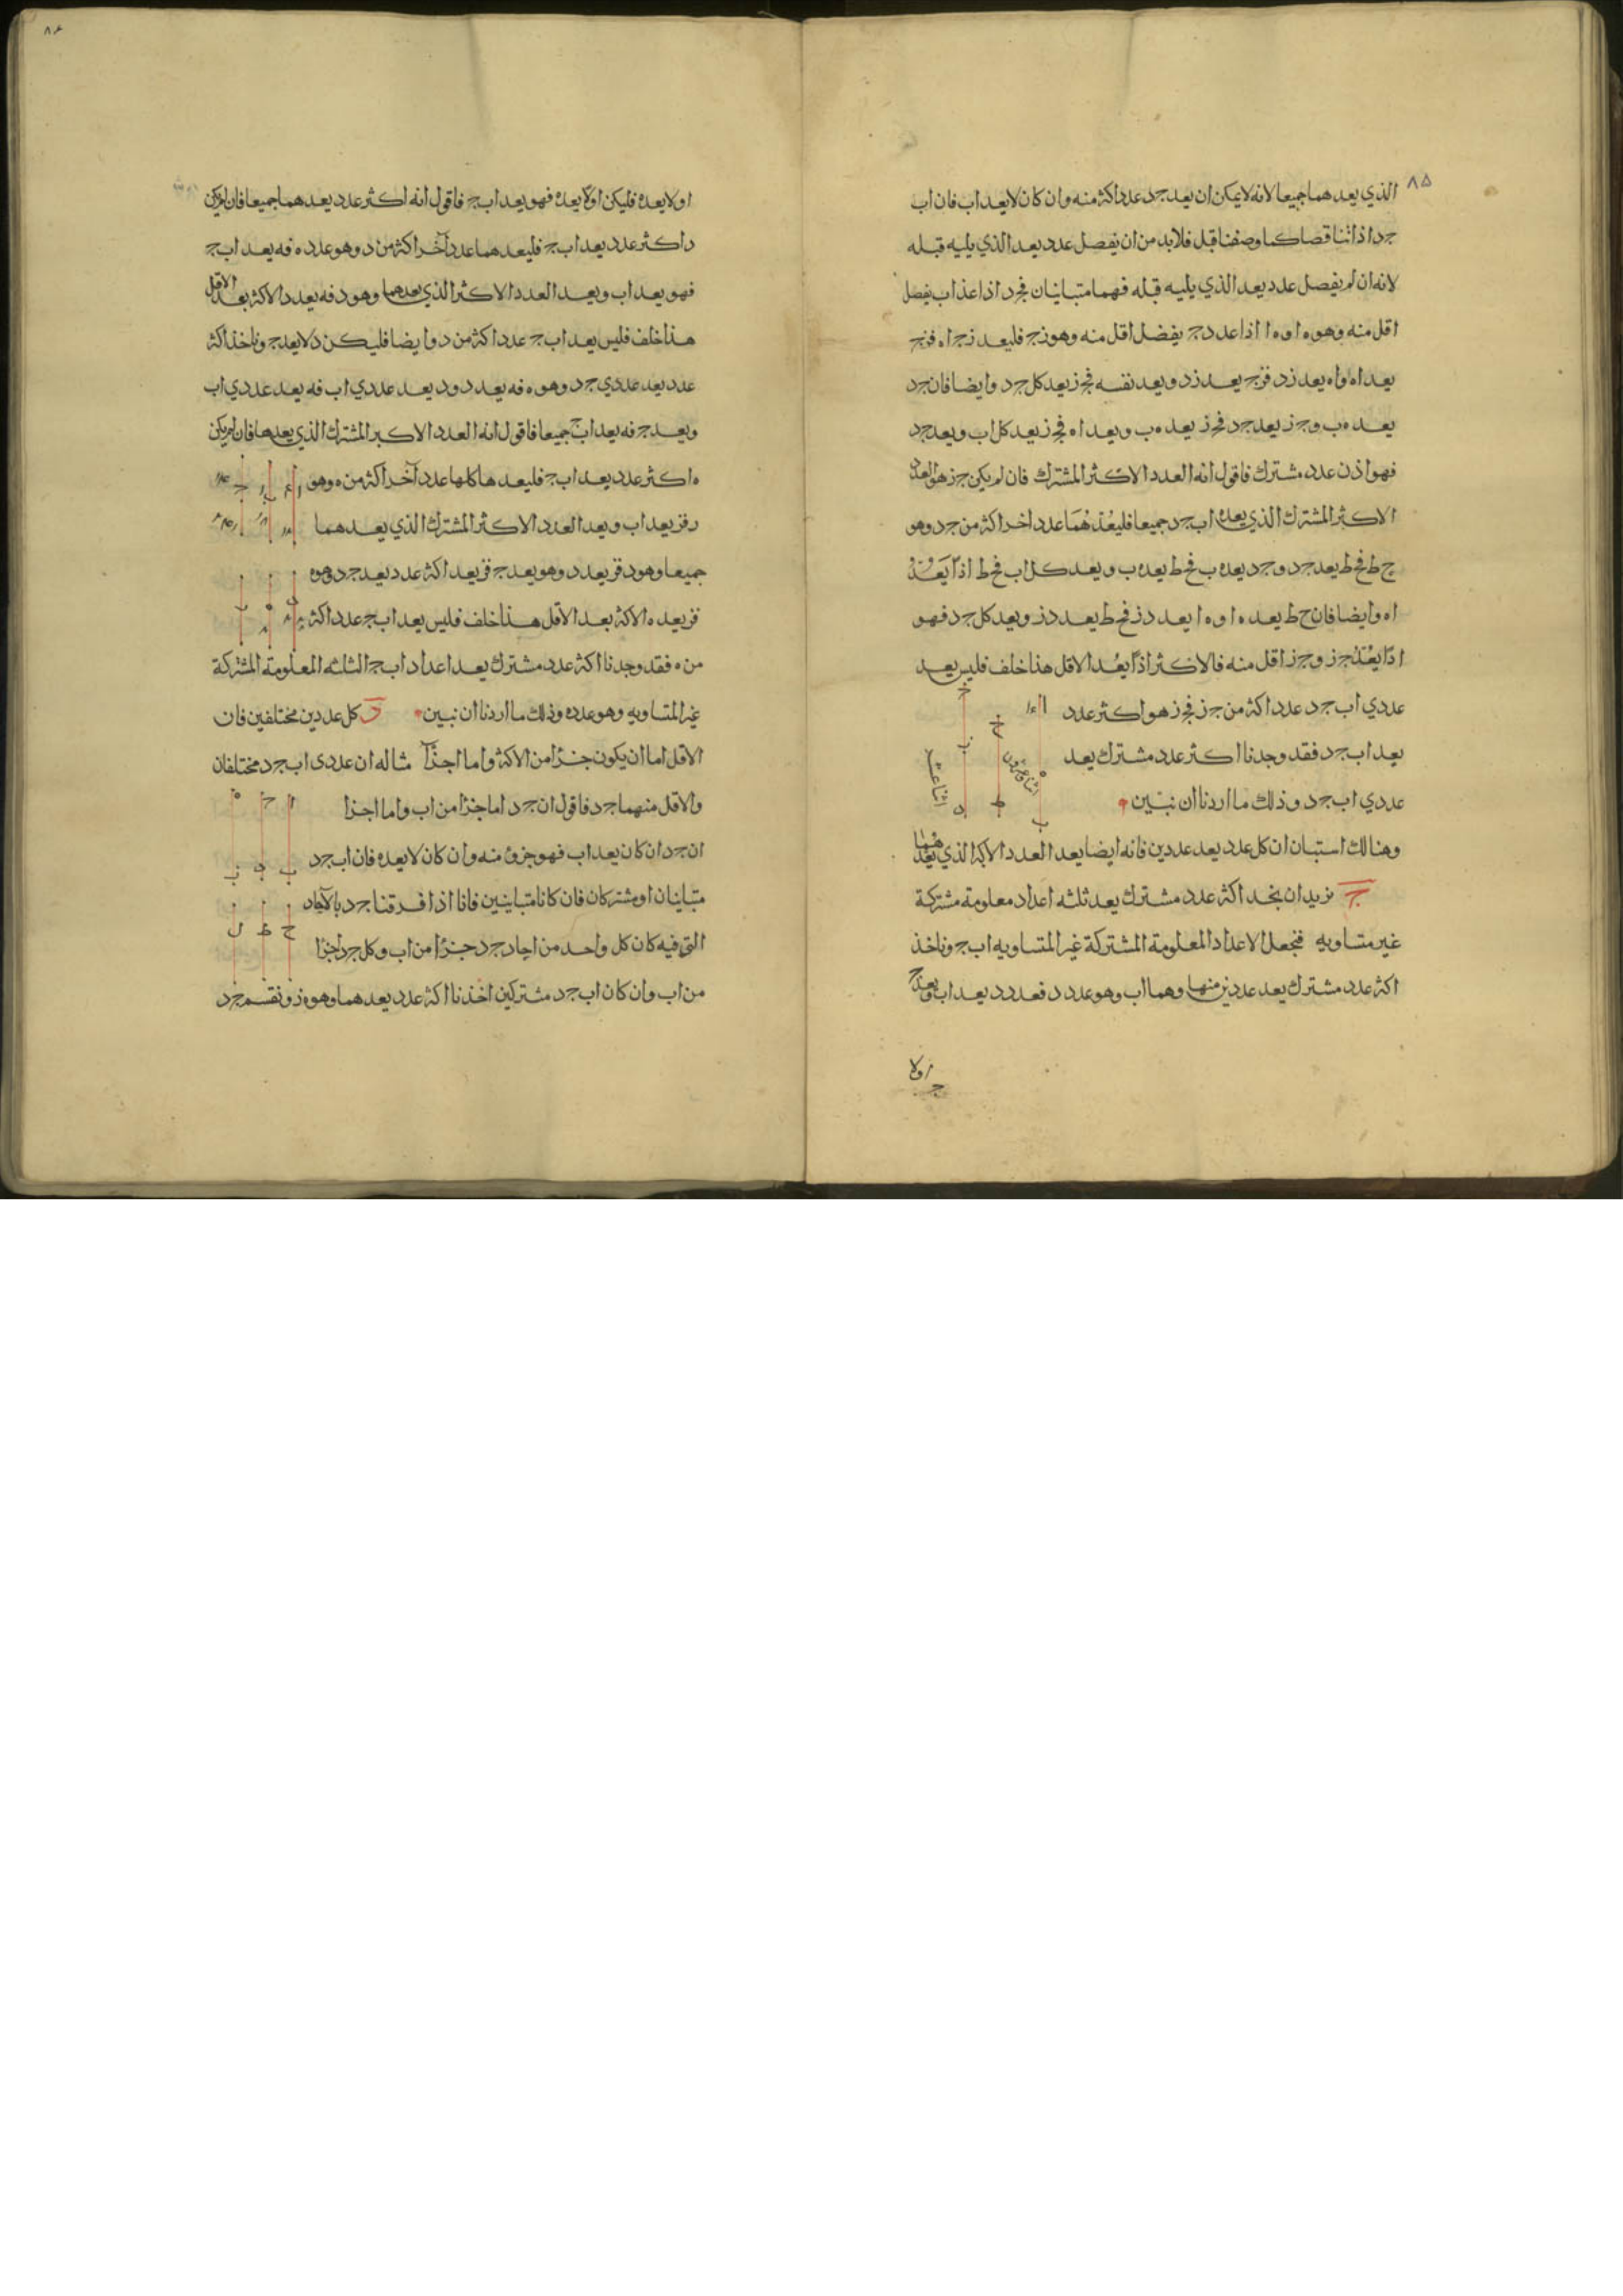 ٨٥
الذي يعدهما جميعا لانه لا يمكن ان يعد جد عدد اكثر منه وان كان لا يعد اب فان اب
جد اذا تناقصا كما وصفنا قبل فلا بد من ان يفصل عدد يعد الذي يليه قبله
لانه ان لم يفصل عدد يعد الذي يليه قبله فهما متباينان فجد اذا عد اب يفصل
اقل منه وهو ه ا و ه ا اذا عد دج يفضل اقل منه وهو زج فليعد زج اه فزج
يعد اه واه يعد زد فزج يعد زد ويعد نفسه فجز يعد كل جد وايضا فان جد
يعد ه ب وجز يعد جد فجز يعد ه ب ويعد اه فجز يعد كل اب ويعد جد
فهو اذن عدد مشترك فاقول انه العدد الاكثر المشترك فان لم يكن جز هو العدد
الاكبر المشترك الذي يعد اب جد جميعا فليعدهما عدد اخر اكثر من جد وهو
ح ط فحط يعد جد وجد يعد ه ب فحط يعد ه ب ويعد كل اب فحط اذا يعد
اه وايضا فان حط يعد ه ا و ه ا يعد دز فحط يعد دز ويعد كل جد فهو
اذا يعد جز وجز اقل منه فالاكثر اذا يعد الاقل هذا خلف فليس يعد
عددي اب جد عدد اكثر من جز فجز هو اكثر عدد
يعد اب جد فقد وجدنا اكثر عدد مشترك يعد
عددي اب جد وذلك ما اردنا ان نبين
وهنالك استبان ان كل عدد يعد عددين فانه ايضا يعد العدد الاكبر الذي يعدهما
ج نريد ان نجد اكثر عدد مشترك يعد ثلثه اعداد معلومة مشتركة
غير متساويه فنجعل الاعداد المعلومة المشتركة غير المتساويه اب ج وناخذ
اكثر عدد مشترك يعد عددين منها وهما اب وهو عدد د فعدد د يعد اب ويعد ج
اولا
٨٦
او لا يعده فليكن اولا يعده فهو يعد اب ج فاقول انه اكثر عدد يعدهما جميعا فان لم يكن
د اكثر عدد يعد اب ج فليعدهما عدد آخر اكثر من د وهو عدد ه فه يعد اب ج
فهو يعد اب ويعد العدد الاكثر الذي يعدهما وهو د فه يعد د الاكثر يعد الاقل
هذا خلف فليس يعد اب ج عدد اكثر من د وايضا فليكن د لا يعد ج وناخذ اكثر
عدد يعد عددي ج د وهو ه فه يعد د ود يعد عددي اب فه يعد عددي اب
ويعد ج فه يعد اب ج جميعا فاقول انه العدد الاكبر المشترك الذي يعدها فان لم يكن
ه اكثر عدد يعد اب ج فليعدها كلها عدد آخر اكثر من ه وهو
ر فز يعد اب ويعد العدد الاكثر المشترك الذي يعدهما
جميعا وهو د فز يعد د وهو يعد ج فز يعد اكثر عدد يعد ج د وهو ه
فز يعد ه الاكثر يعد الاقل هذا خلف فليس يعد اب ج عدد اكثر
من ه فقد وجدنا اكثر عدد مشترك يعد اعداد اب ج الثلثه المعلومة المشتركة
غير المتساويه وهو عدد ه وذلك ما اردنا ان نبين د كل عددين مختلفين فان
الاقل اما ان يكون جزءا من الاكثر واما اجزآ مثاله ان عددى اب جد مختلفان
والاقل منهما جد فاقول ان جد اما جزا من اب واما اجزا
ان جد ان كان يعد اب فهو جزؤ منه وان كان لا يعده فان اب جد
متباينان او مشتركان فان كانا متباينين فانا اذا افرقنا جد بالآحاد
التي فيه كان كل واحد من احاد جد جزءا من اب وكل جد اجزا
من اب وان كان اب جد مشتركين اخذنا اكثر عدد يعدهما وهو ه ز ونقسم جد